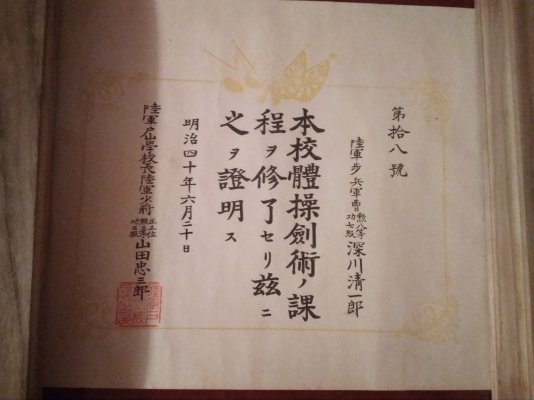 第拾八號
陸軍歩兵軍曹勲八等功七級深川清一郎
本校體操劍術ノ課
程ヲ修了セリ茲ニ
之ヲ證明ス
明治四十年六月二十日
陸軍戸山學校長陸軍少将正五位勲三等功三級山田忠三郎